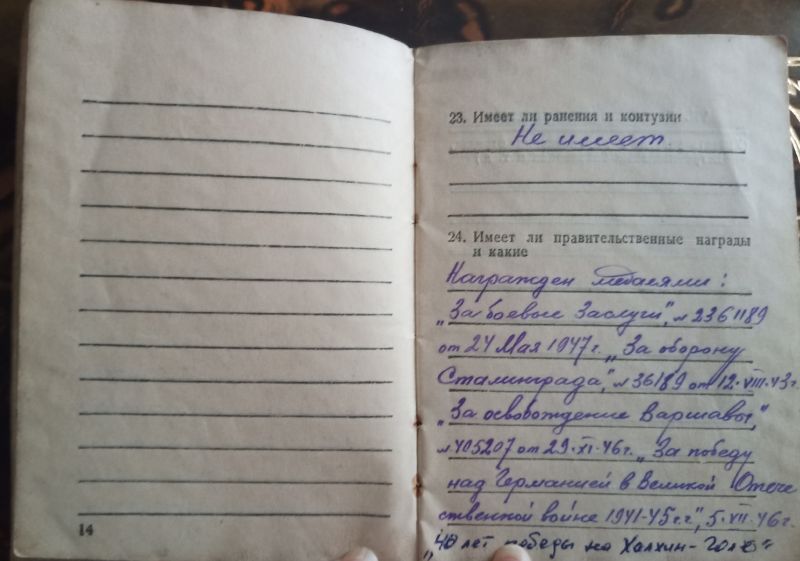 14
23. Имеет ли ранения и контузии
Не имеет.
24. Имеет ли правительственные награды
и какие
Награжден медалями:
„За боевые Заслуги", №2361189
от 24 Мая 1947г. „За оборону
Сталинграда", №36189 от 12.VIII.43г.
„За освобождение Варшавы,"
№405207 от 29.XI.46г. „За победу
над Германией в Великой Отече
ственной войне 1941-45г.г.", 5.VII.46г.
„40 лет победы на Халхин-Голе"